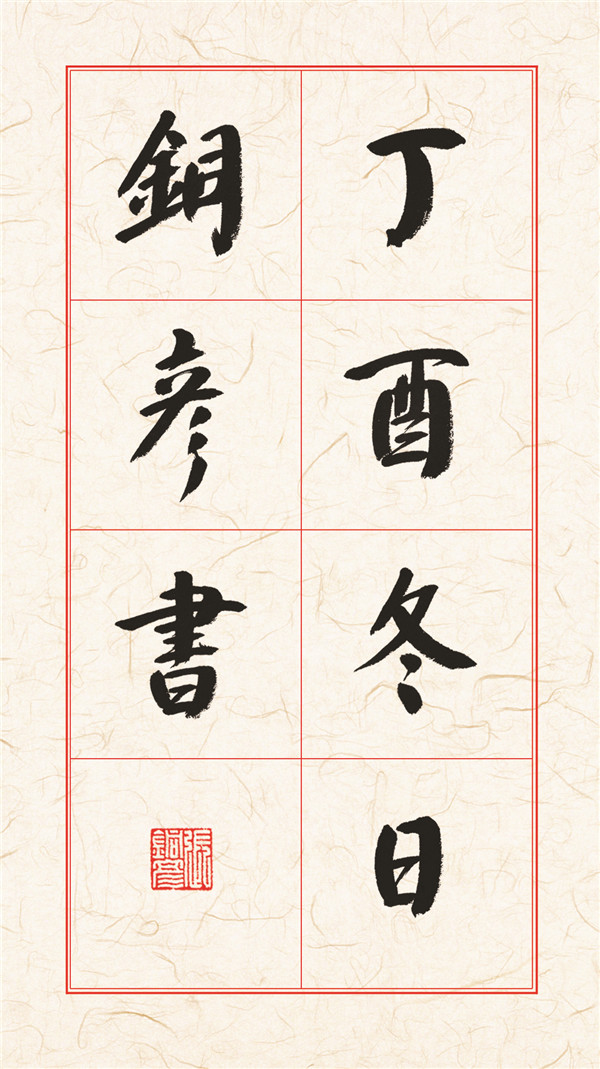 丁酉冬日
銅彦書
張銅彦